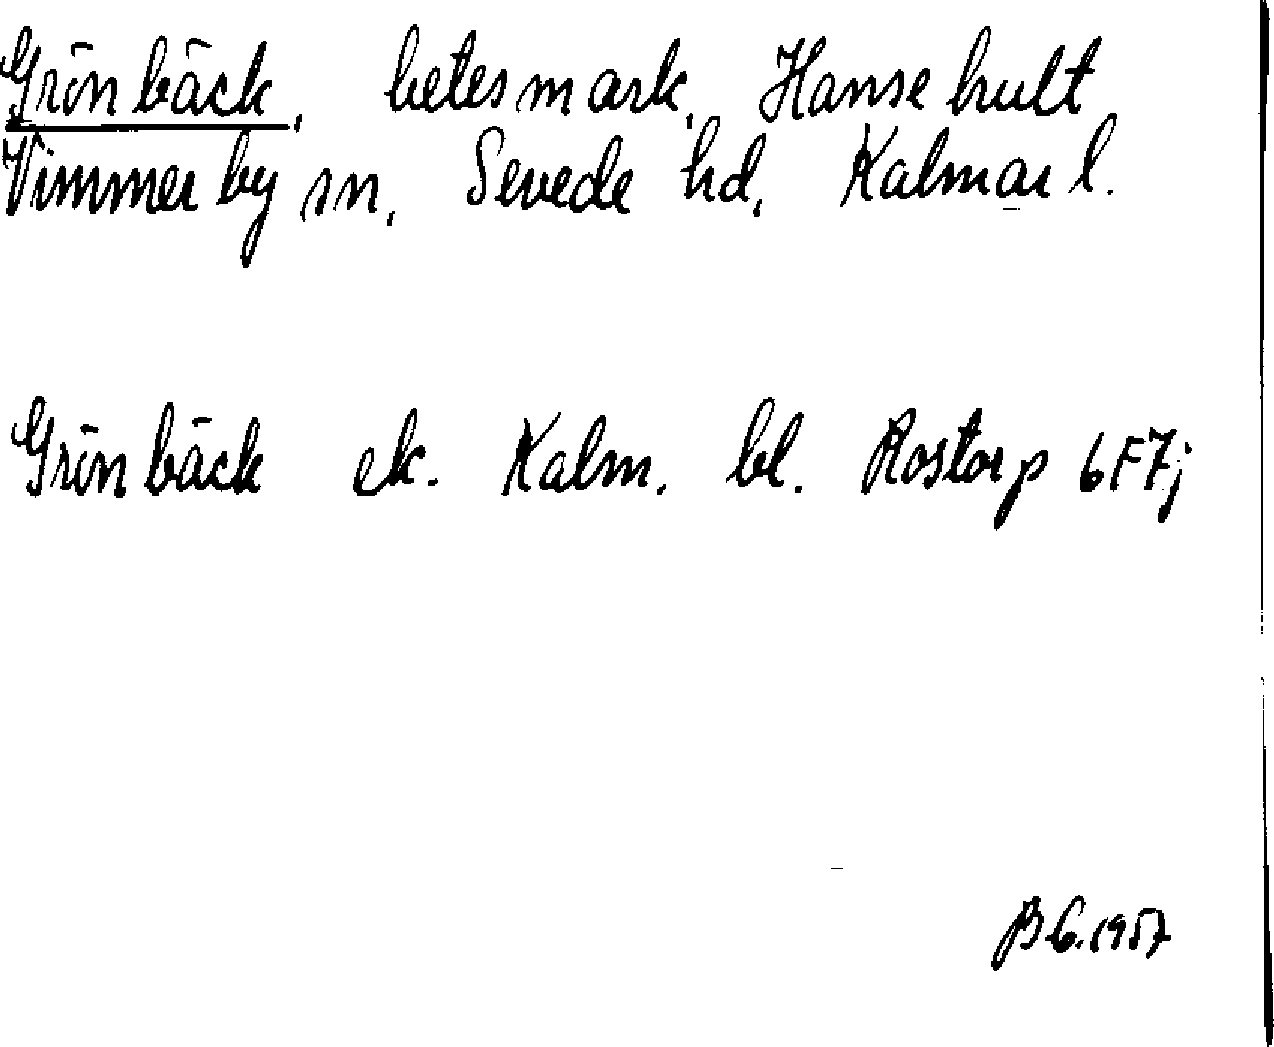 Grönbäck, betesmark, Hansehult,
Vimmerby sn, Sevede hd, Kalmar l.
Grönbäck ek. Kalm. bl. Rostorp 6F7j
BG. 1957